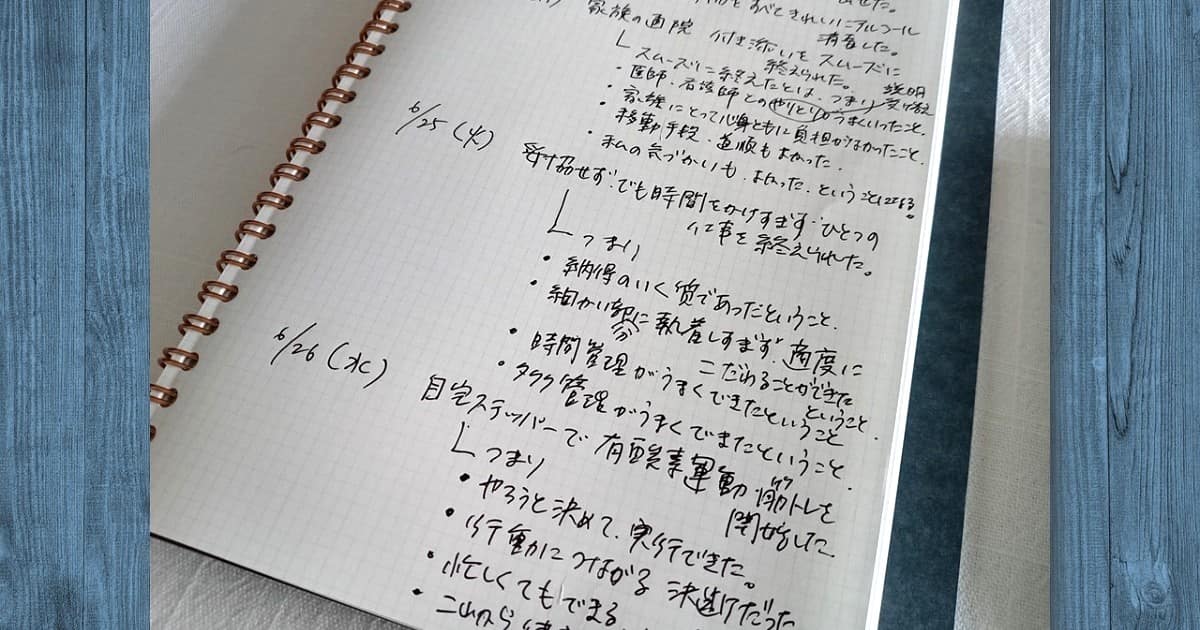 をすべてきれいにアルコール
消毒した。
家族の通院 付き添いをスムーズに
終えられた。
・スムーズに終えたとは、つまり 説明
・医師・看護師とのやりとりがうまくいったこと、受け答え
・家族にとって心身ともに負担がなかったこと、
・移動手段・道順もよかった、
・私の気づかいも、よかった、ということになる。
6/25(火) 妥協せず、でも時間をかけすぎず、ひとつの
仕事を終えられた。
つまり
・納得のいく質であったということ、
・細かい部分に執着しすぎず、適度に
こだわることができた
ということ、
・時間管理がうまくできたということ
・タスク管理がうまくできたということ、
6/26(水) 自宅ステッパーで有酸素運動 筋トレを
開始した
つまり
・やろうと決めて、実行できた。
・行動につながる決断だった
・忙しくてもできる
・これから